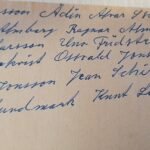 sson Adin Alvar
Almberg Ragnar Alm
arsson Uno Fridst
kvist Osvald Jons
Jonsson Jean Schi
undmark Knut